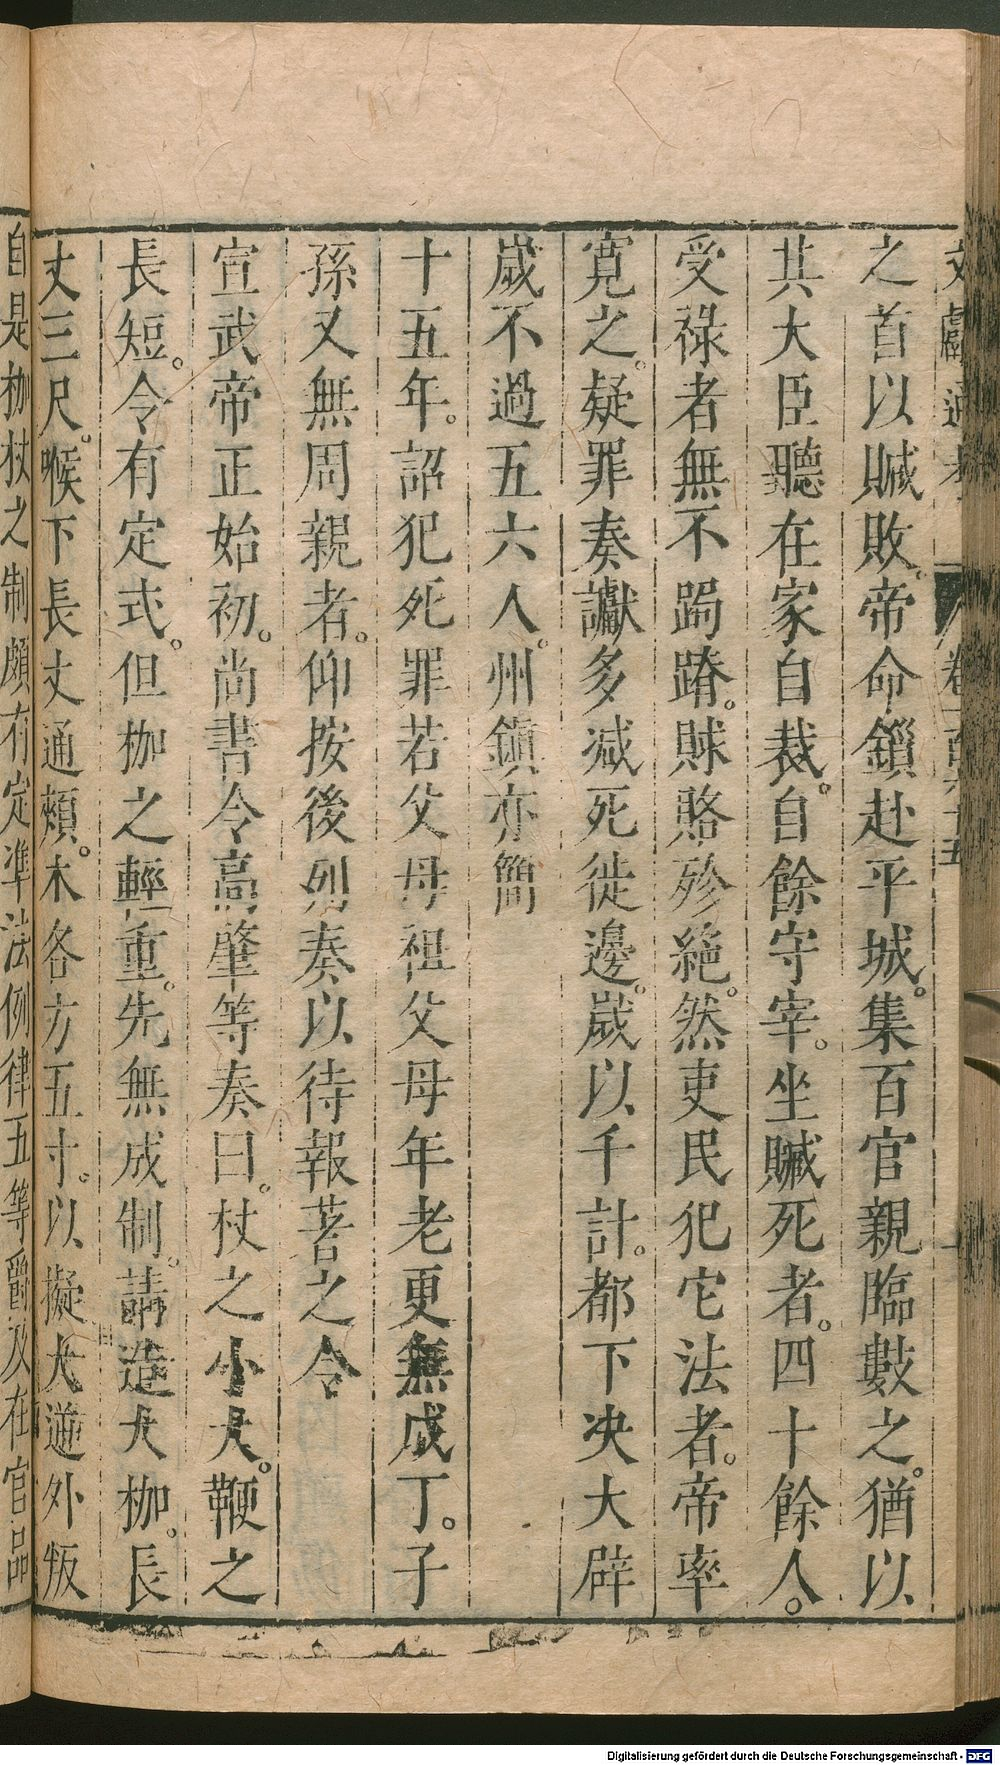 文獻通考 卷一百六十五
之首以贓敗。帝命鎻赴平城。集百官親臨數之。猶以
共大臣聽在家自裁。自餘守宰。坐贓死者。四十餘人。
受祿者無不跼蹐。賕賂殄絕。然吏民犯它法者。帝率
寬之。疑罪奏讞多减死徙邊。歲以千計。都下决大辟
歲不過五六人。州鎭亦簡
十五年。詔犯死罪若父母祖父母年老更無成丁。子
孫又無周親者。仰按後列奏以待報著之令
宣武帝正始初。尚書令高肇等奏曰。杖之小大。鞭之
長短。令有定式。但枷之輕重。先無成制。請造大枷。長
丈三尺。喉下長丈通頰。木各方五寸。以擬大逆外叛
自是枷杖之制頗有定準法例律五等爵及在官品
Digitalisierung gefördert durch die Deutsche Forschungsgemeinschaft - DFG